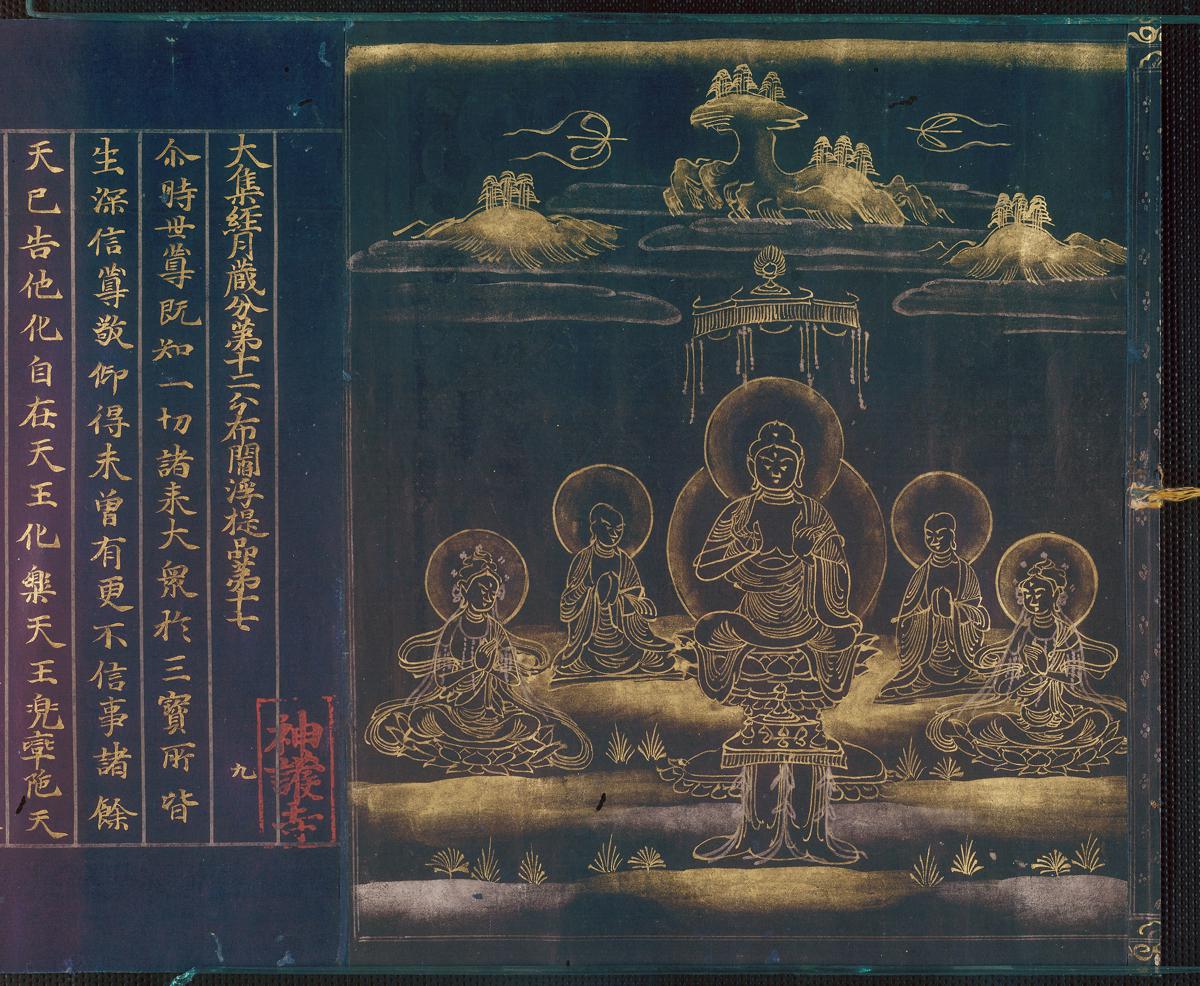 大集経月蔵分第十二分布閻浮提品第十七
九
尒時世尊既知一切諸来大衆於三寳所皆
生深信尊敬仰得未曾有更不信事諸餘
天已告他化自在天王化樂天王兜率陁天
神護寺